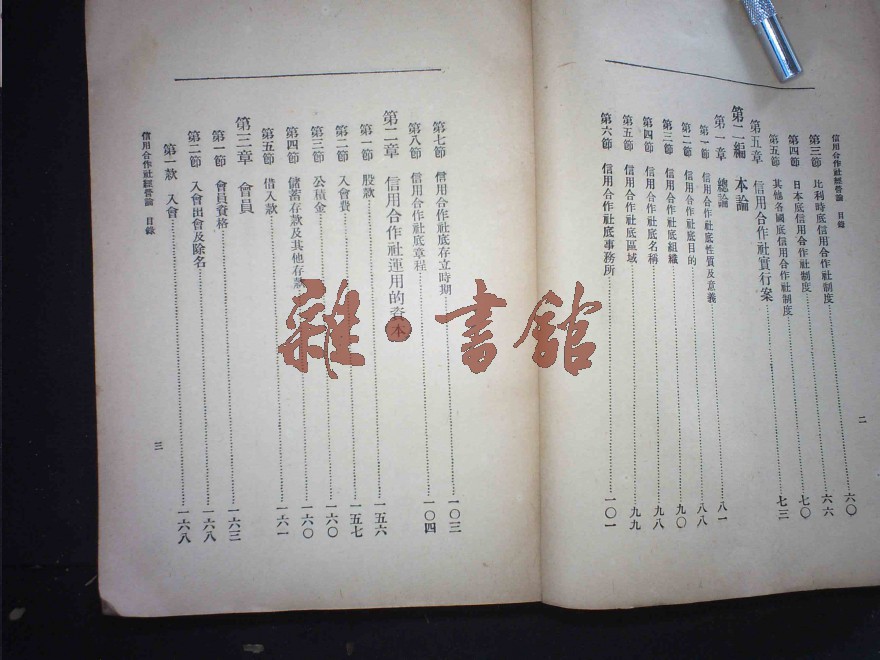 信用合作社經營論 目錄
二
第三節 比利時底信用合作社制度……六〇
第四節 日本底信用合作社制度……六六
第五節 其他各國底信用合作社制度……七〇
第五章 信用合作社實行案……七三
第二編 本論
第一章 總論
第一節 信用合作社底性質及意義……八一
第二節 信用合作社底目的……八八
第三節 信用合作社底組織……九〇
第四節 信用合作社底名稱……九八
第五節 信用合作社底區域……九九
第六節 信用合作社底事務所……一〇一
第七節 信用合作社底存立時期……一〇三
第八節 信用合作社底章程……一〇四
第二章 信用合作社運用的資本
第一節 股款……一五六
第二節 入會費……一五七
第三節 公積金……一六〇
第四節 儲蓄存款及其他存款……一六〇
第五節 借入款……一六一
第三章 會員
第一節 會員資格……一六三
第二節 入會出會及除名……一六八
第一款 入會……一六八
信用合作社經營論 目錄
三
雜·書館